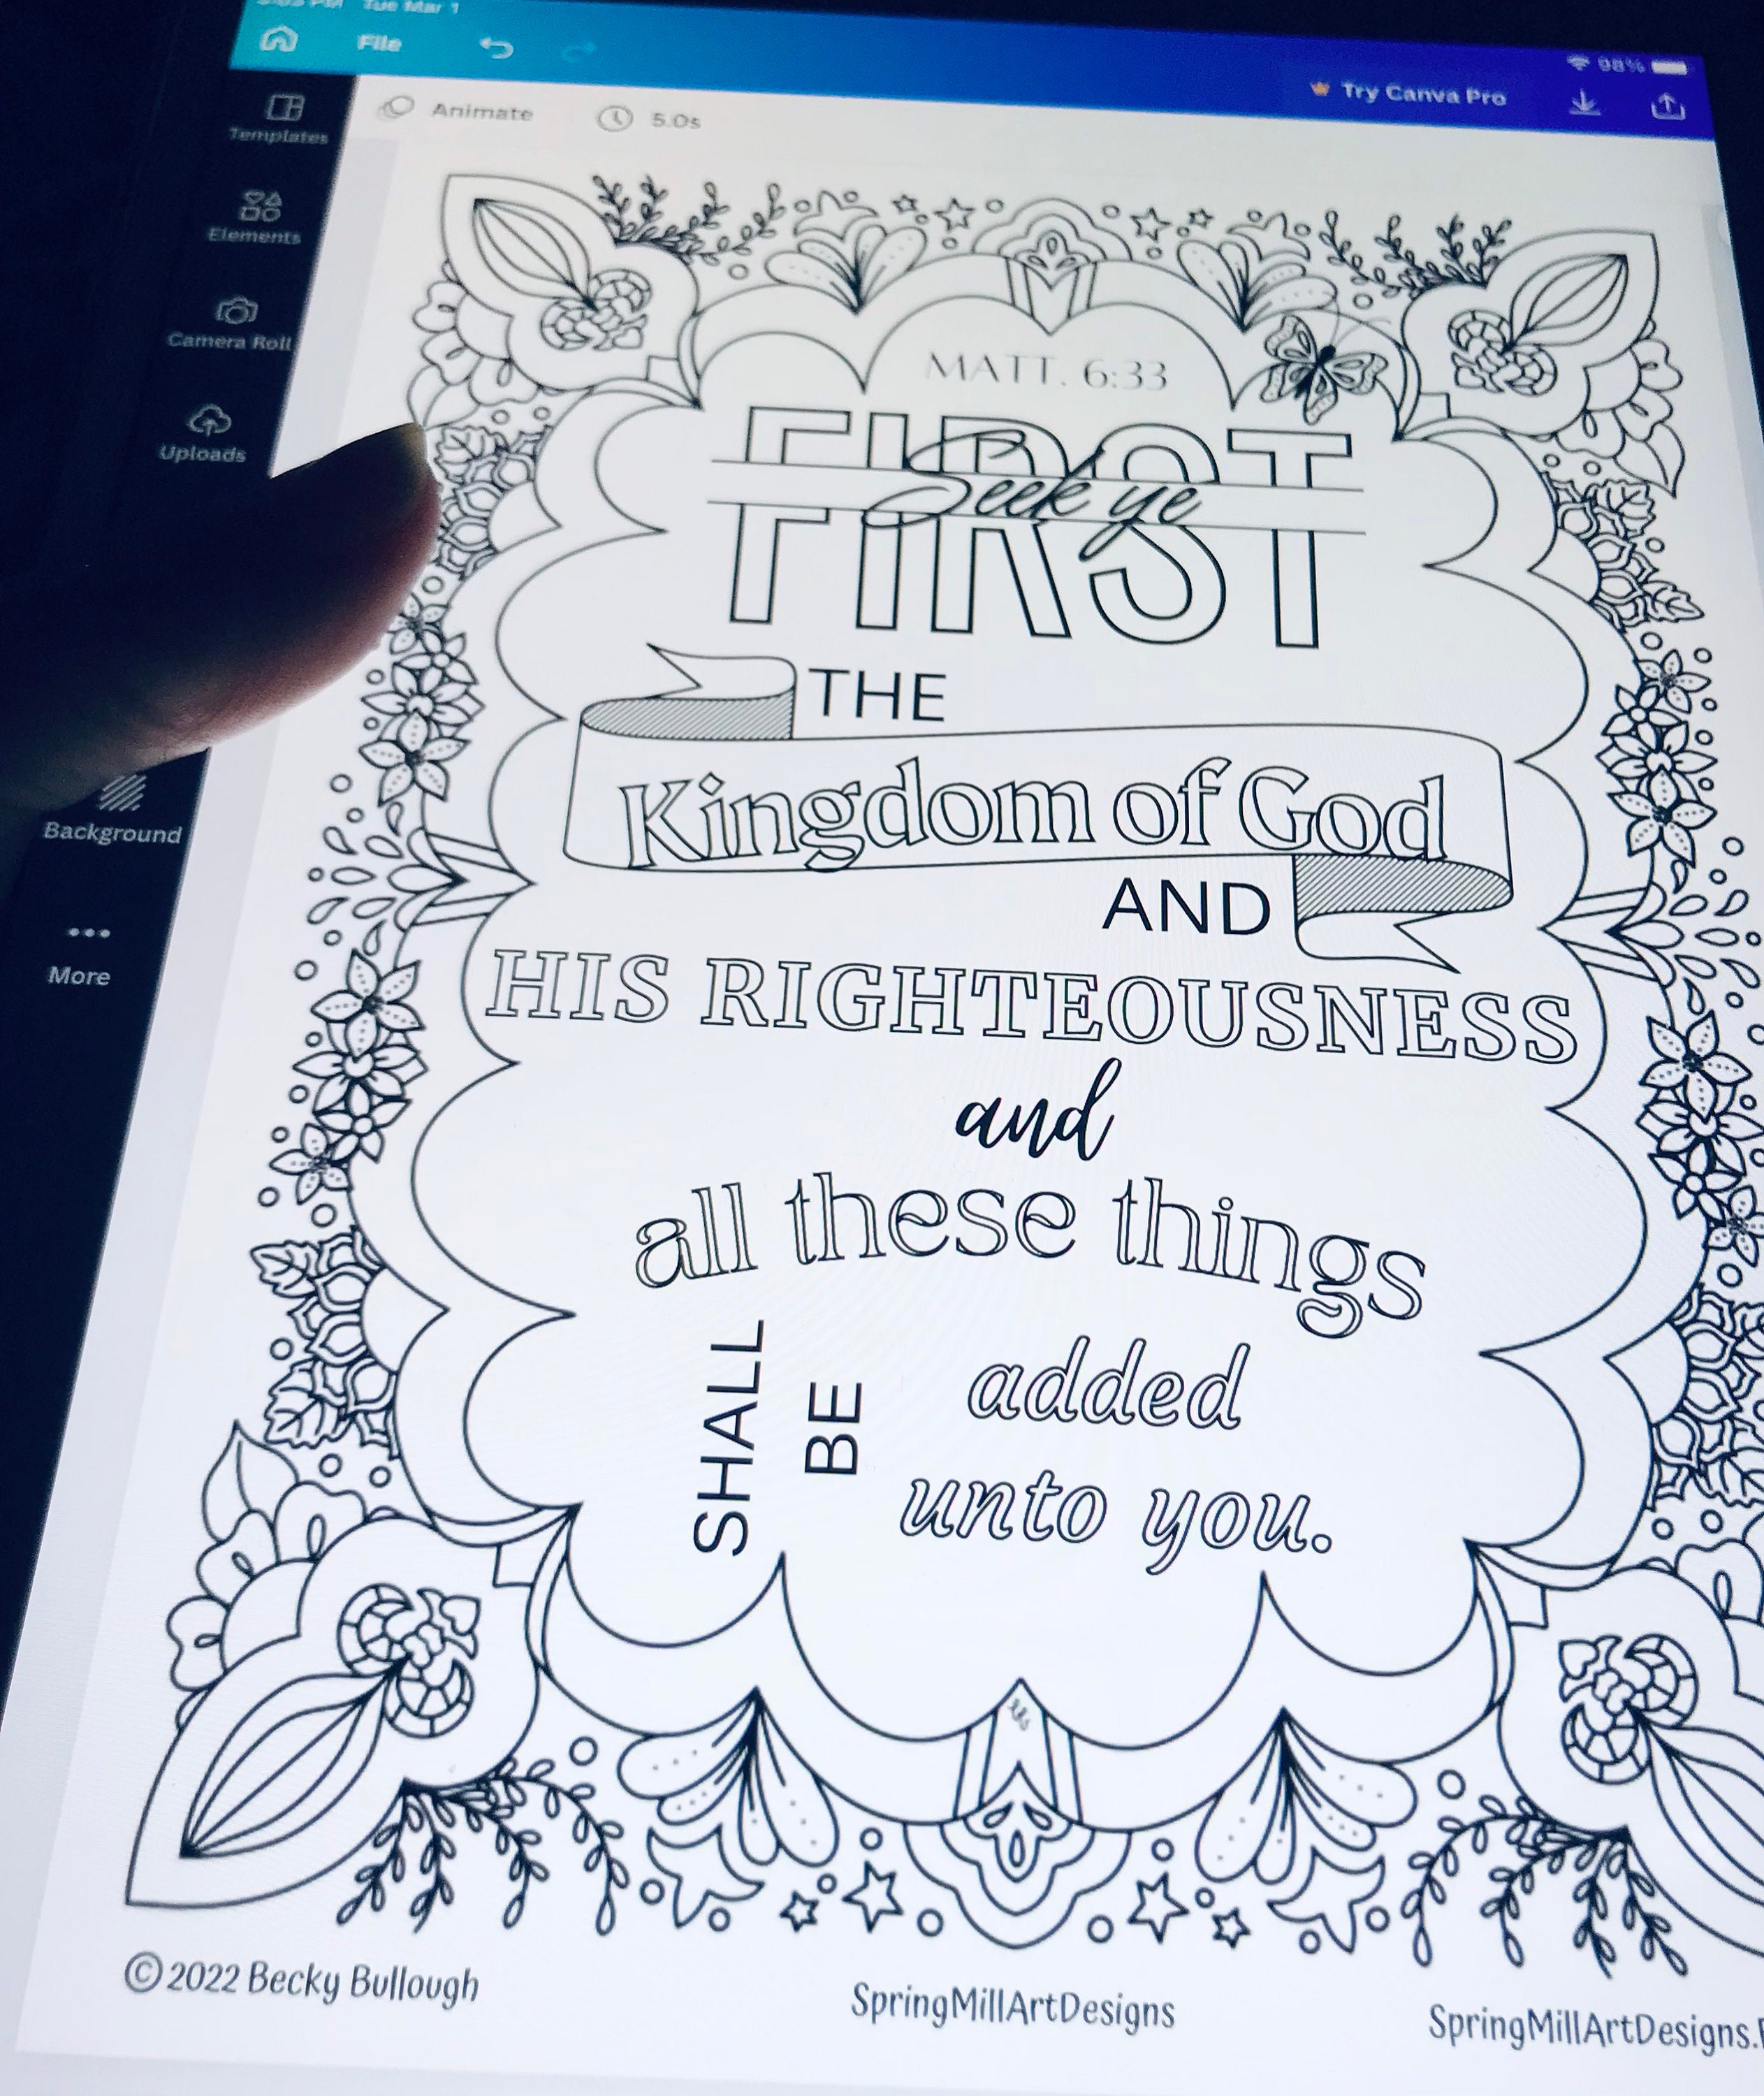 Tue Mar 1
98%
File
Try Canva Pro
Animate
5.0s
Templates
Elements
Camera Roll
Uploads
Background
More
MATT. 6:33
Seek ye
FIRST
THE
Kingdom of God
AND
HIS RIGHTEOUSNESS
and
all these things
SHALL
BE
added
unto you.
© 2022 Becky Bullough
SpringMillArtDesigns
SpringMillArtDesigns.